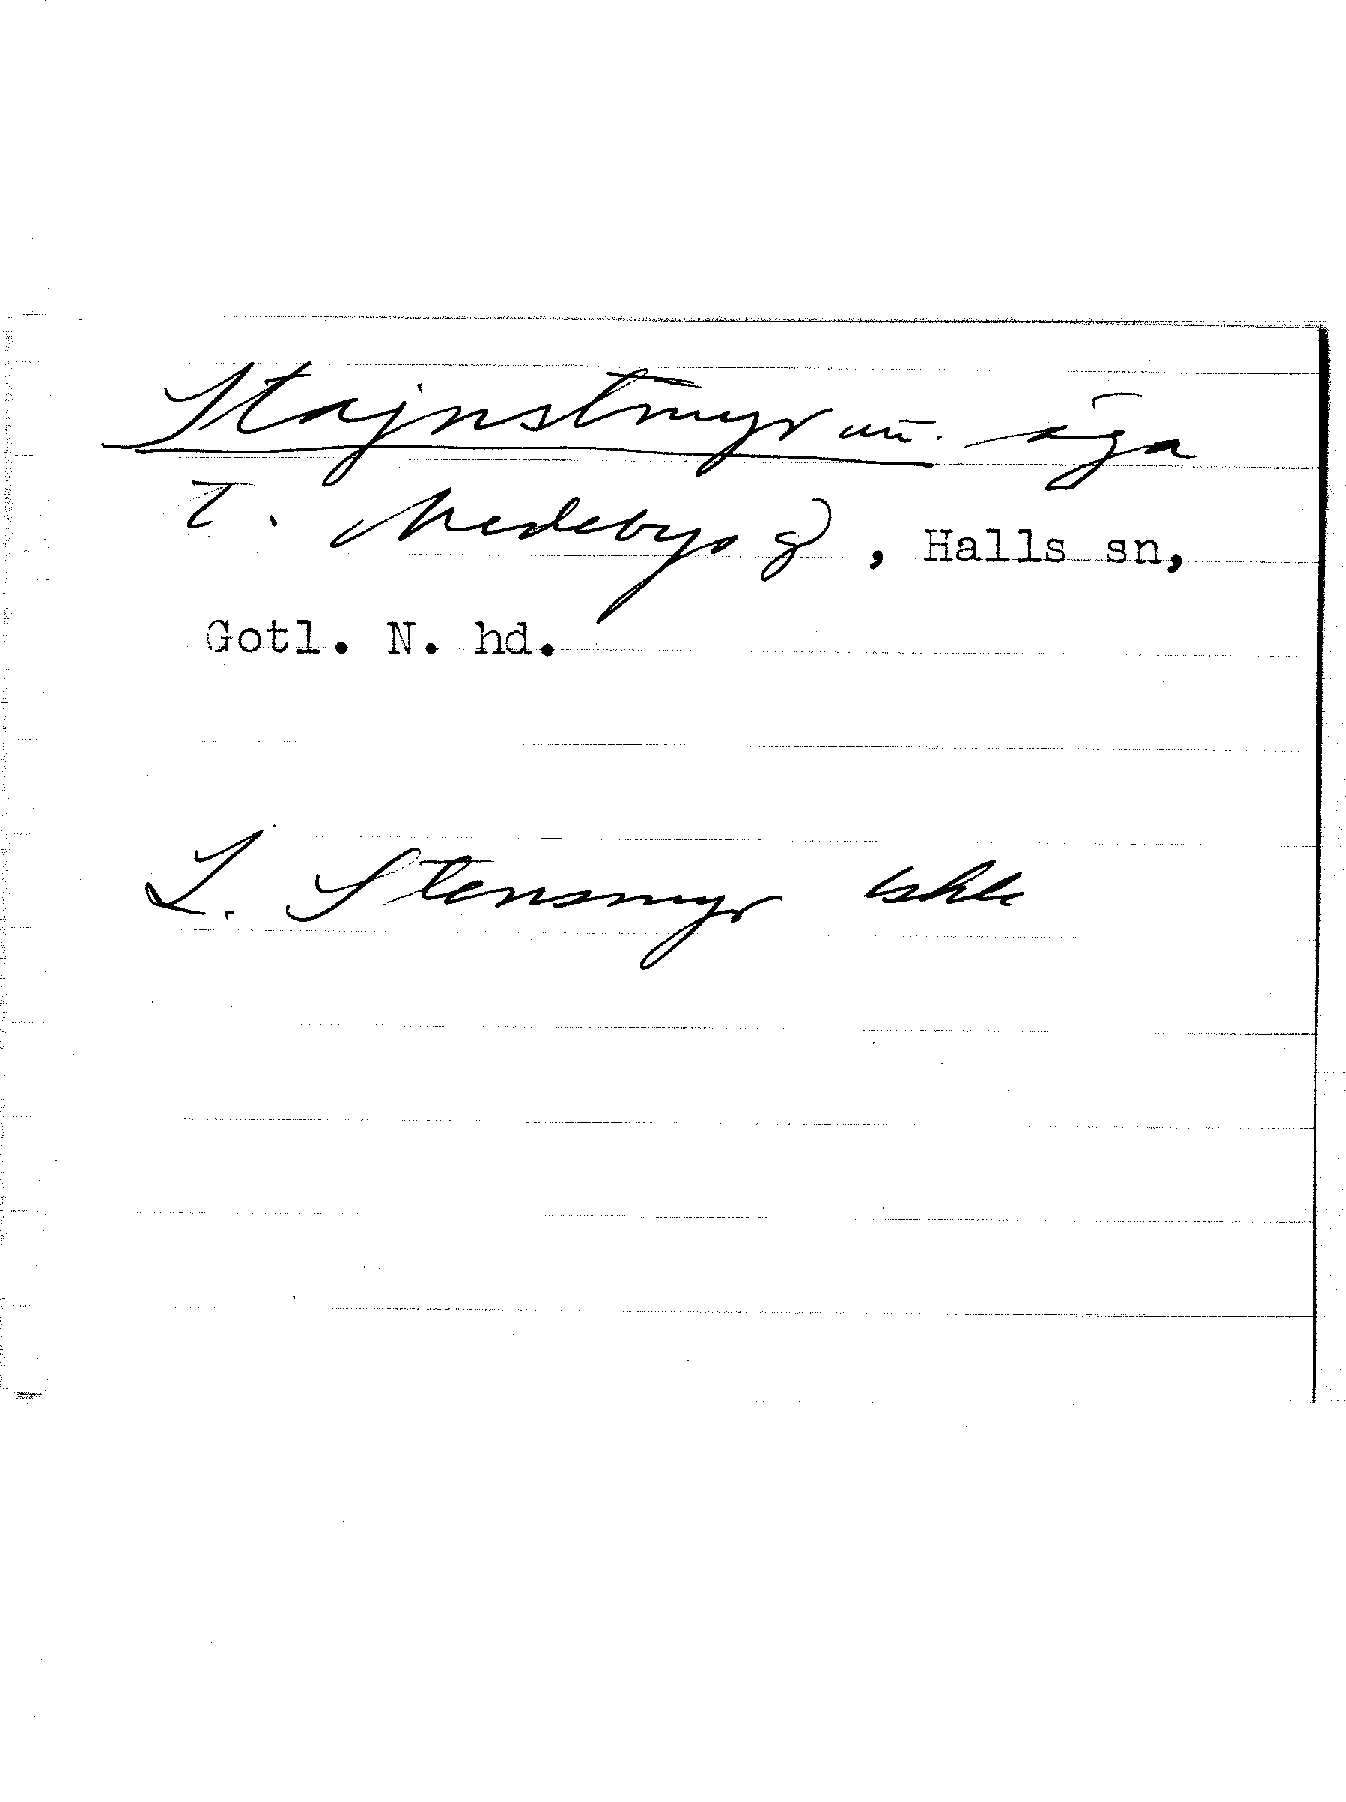 Stajnstmyr äga
T. Medebys g), Halls sn,
Gotl. N. hd.
L. Stensmyr